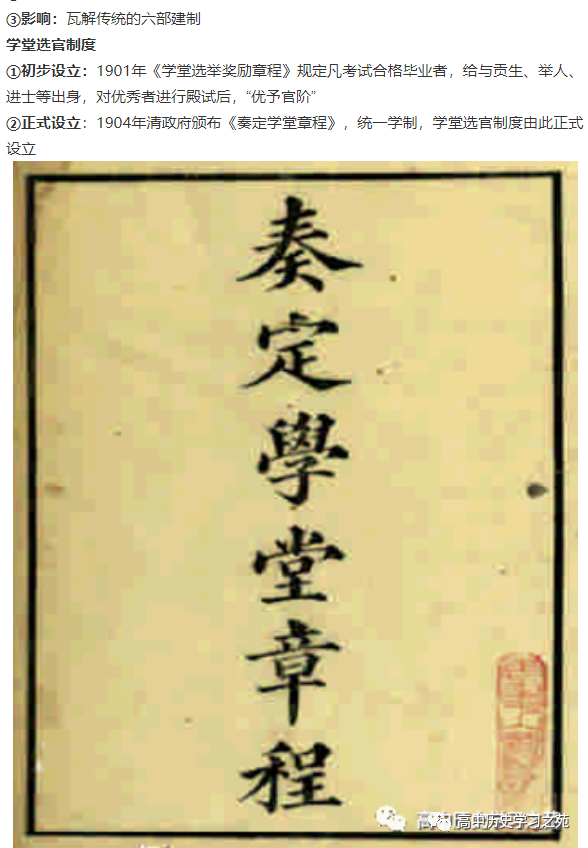 ③影响：瓦解传统的六部建制
学堂选官制度
①初步设立：1901年《学堂选举奖励章程》规定凡考试合格毕业者，给与贡生、举人、
进士等出身，对优秀者进行殿试后，“优予官阶”
②正式设立：1904年清政府颁布《奏定学堂章程》，统一学制，学堂选官制度由此正式
设立
奏定學堂章程
高中历史学习之苑